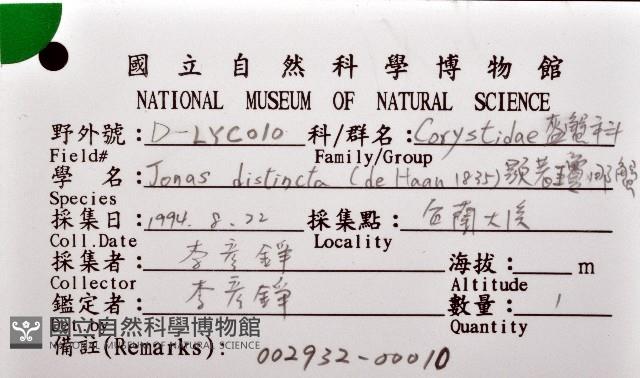 國立自然科學博物館
NATIONAL MUSEUM OF NATURAL SCIENCE
野外號: D-LYC010 科/群名: Corystidae 盔蟹科
Field# Family/Group
學 名: Jonas distincta (de Haan 1835) 顯著瓊娜蟹
Species
採集日: 1994. 8. 22 採集點: 台南大溪
Coll.Date Locality
採集者: 李彥錚 海拔: m
Collector Altitude
鑑定者: 李彥錚 數量: 1
Det.by Quantity
國立自然科學博物館
NATIONAL MUSEUM OF NATURAL SCIENCE
備註(Remarks): 002932-00010